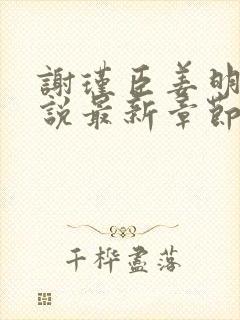 謝瑾臣姜明
說最新章節
千樺盡落